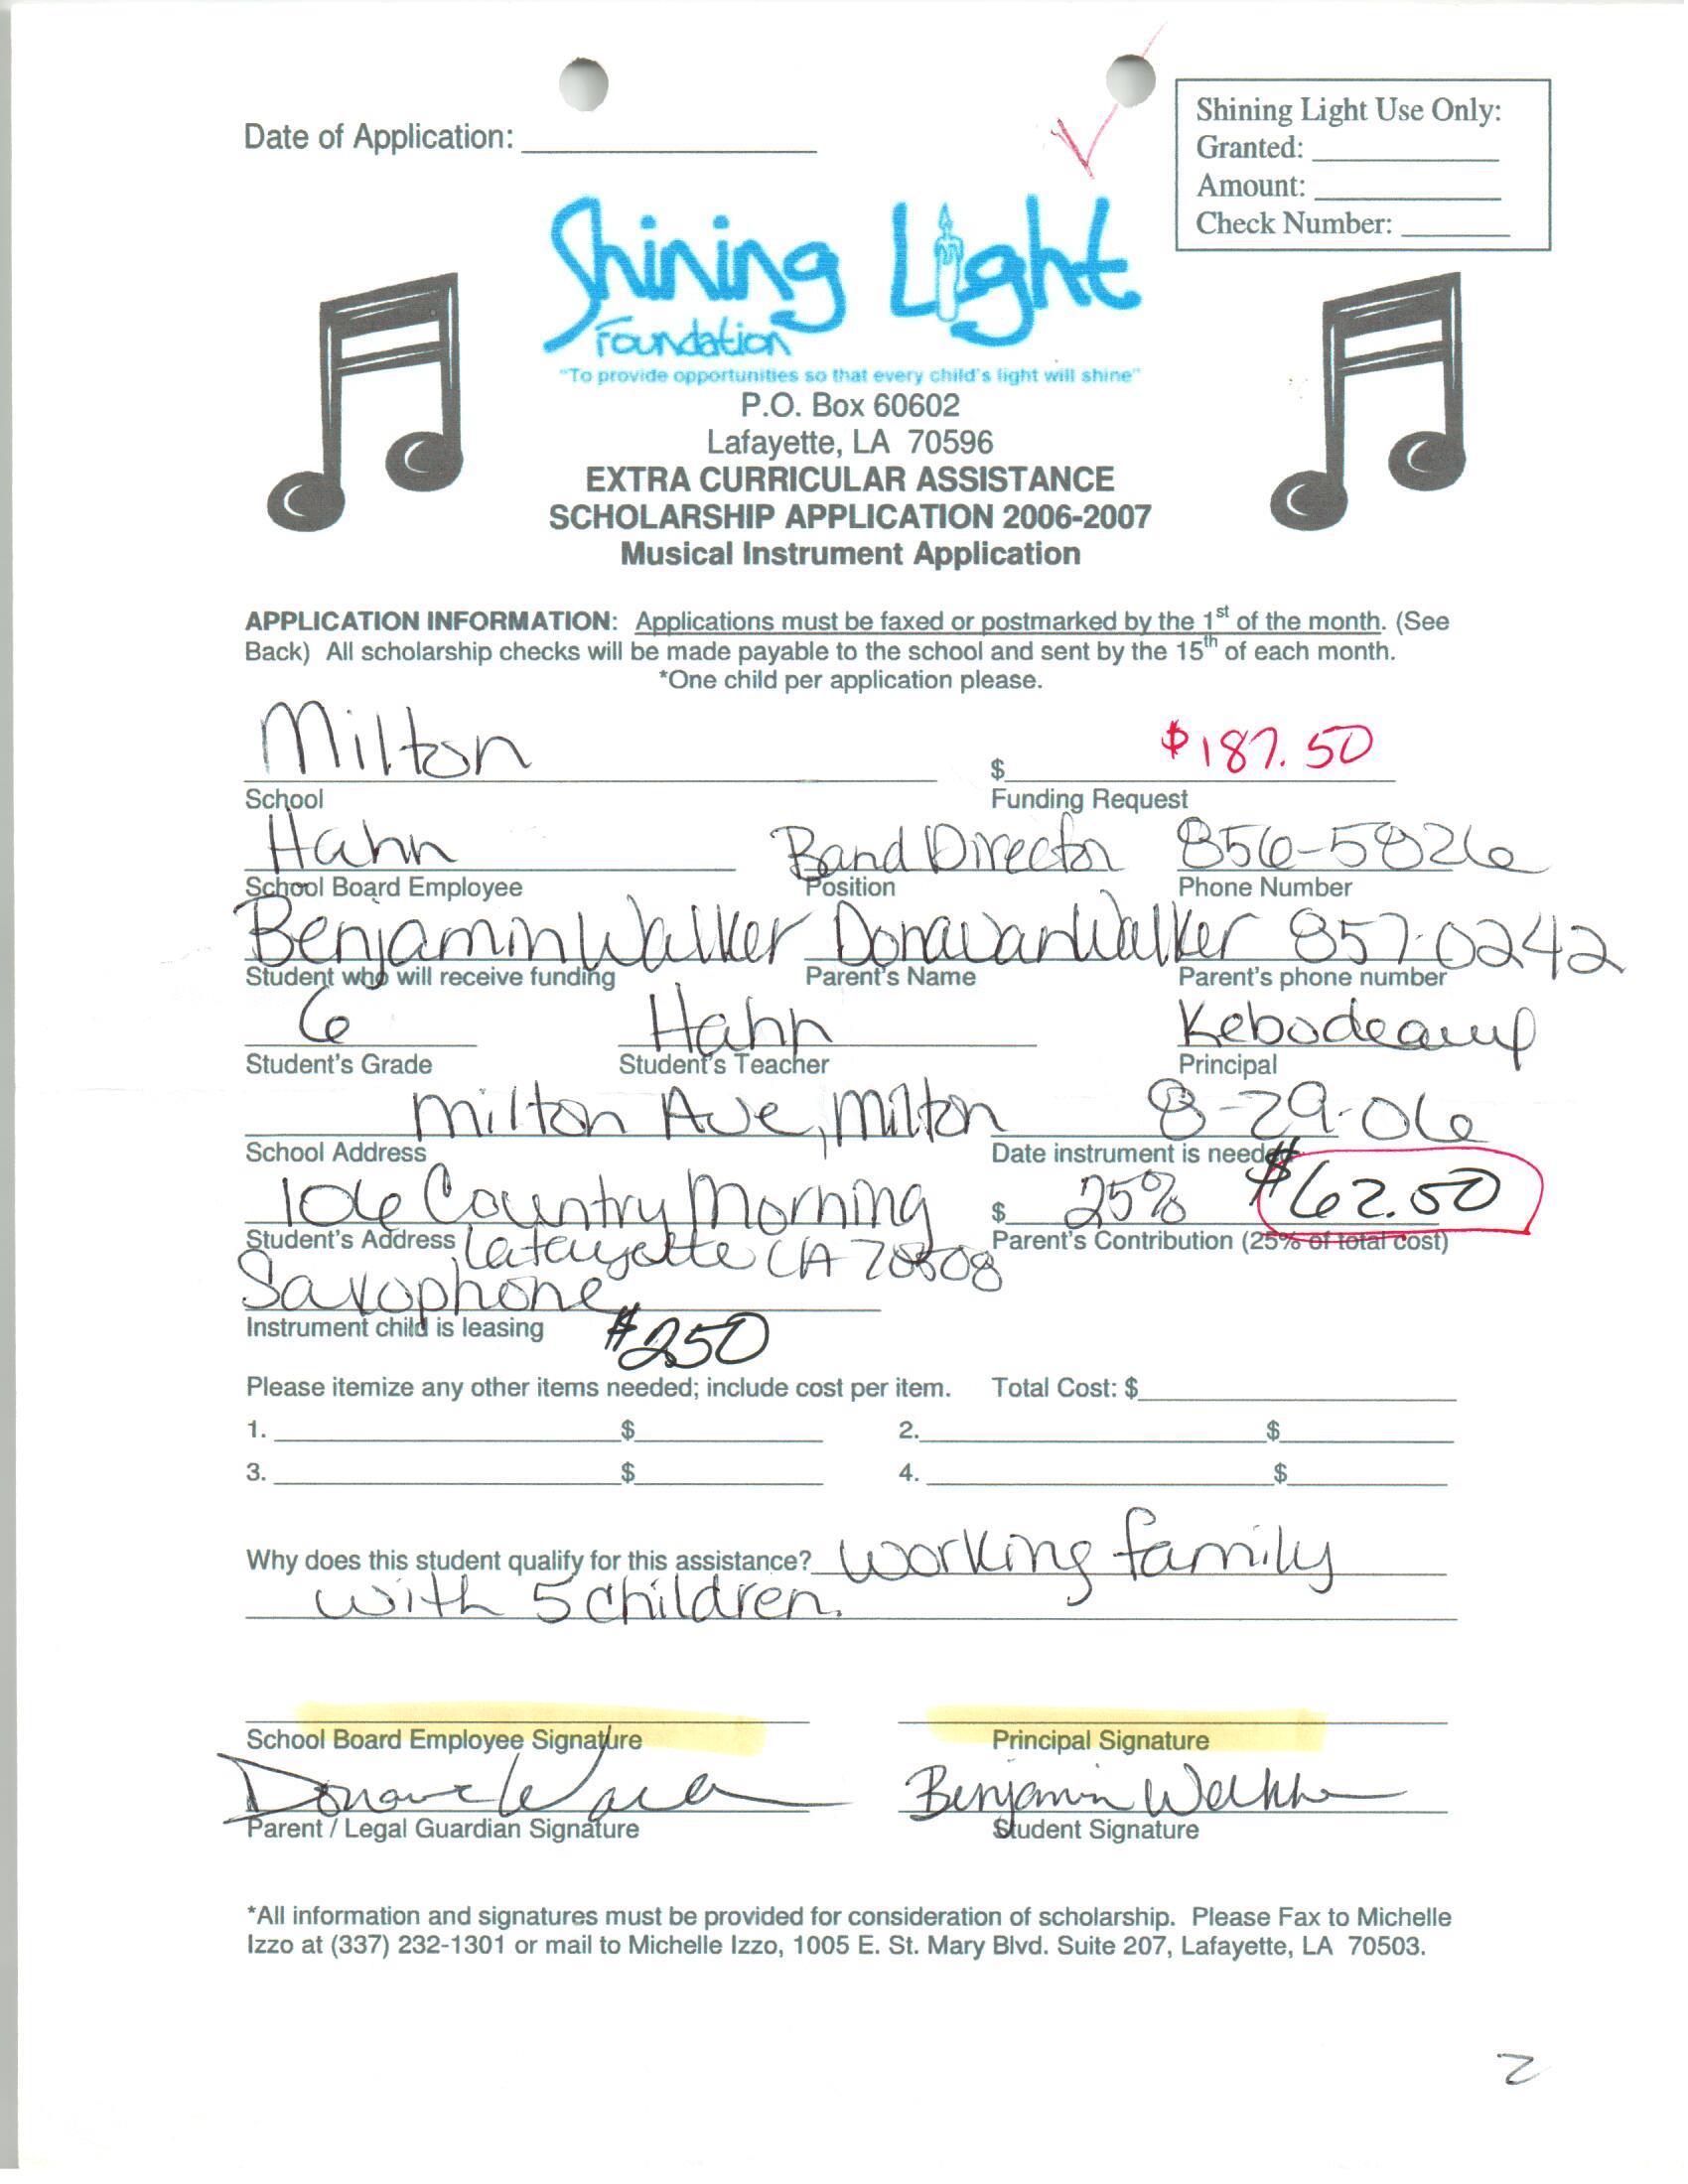 Date of Application:
Shining Light Use Only:
Granted:
Amount:
Check Number:
Shining Light
Foundation
"To provide opportunities so that every child's light will shine"
P.O. Box 60602
Lafayette, LA 70596
EXTRA CURRICULAR ASSISTANCE
SCHOLARSHIP APPLICATION 2006-2007
Musical Instrument Application
APPLICATION INFORMATION: Applications must be faxed or postmarked by the 1st of the month. (See
Back) All scholarship checks will be made payable to the school and sent by the 15th of each month.
*One child per application please.
Milton $ $187.50
School Funding Request
Hahn Band Director 856-5826
School Board Employee Position Phone Number
Benjamin Walker Donavan Walker 857-0242
Student who will receive funding Parent's Name Parent's phone number
6 Hahn Kebodeaux
Student's Grade Student's Teacher Principal
Milton Ave, Milton 8-29-06
School Address Date instrument is needed
106 Country Morning $ 25% $62.50
Student's Address Lafayette LA Parent's Contribution (25% of total cost)
Saxophone
Instrument child is leasing $250
Please itemize any other items needed; include cost per item. Total Cost: $
1. $ 2. $
3. $ 4. $
Why does this student qualify for this assistance? working family
with 5 children.
School Board Employee Signature Principal Signature
Benjamin Walker
Parent / Legal Guardian Signature Student Signature
*All information and signatures must be provided for consideration of scholarship. Please Fax to Michelle
Izzo at (337) 232-1301 or mail to Michelle Izzo, 1005 E. St. Mary Blvd. Suite 207, Lafayette, LA 70503.
2